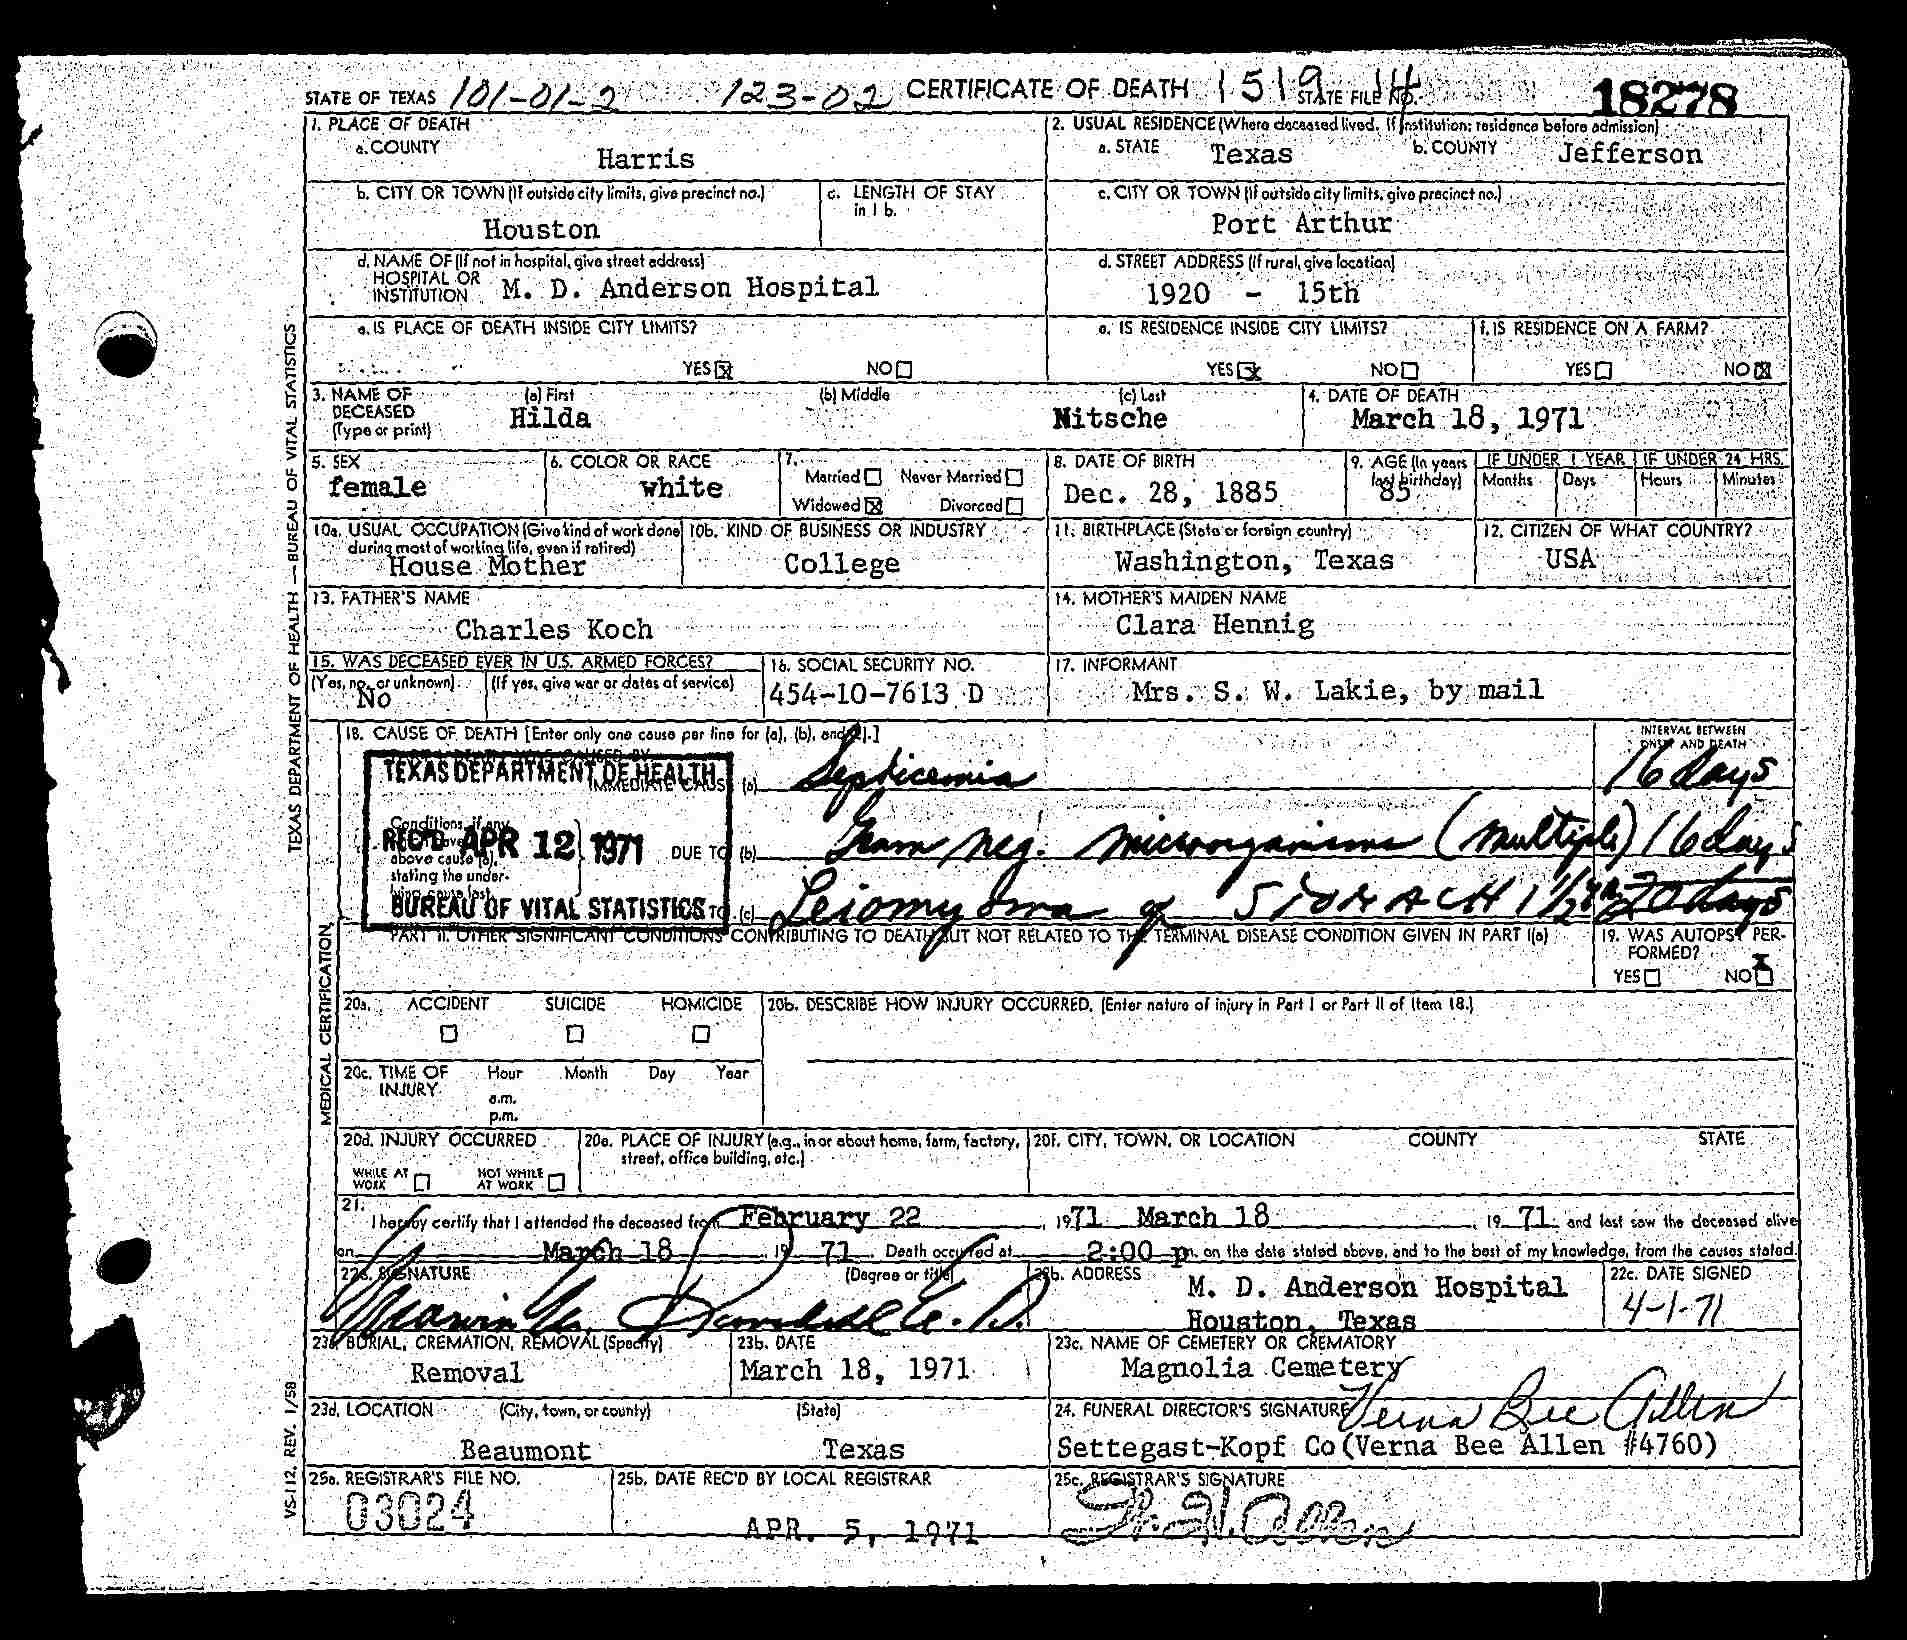 STATE OF TEXAS 101-01-2 123-02 CERTIFICATE OF DEATH 1519 14 STATE FILE NO. 18278
1. PLACE OF DEATH
a. COUNTY Harris
2. USUAL RESIDENCE (Where deceased lived. If institution: residence before admission)
a. STATE Texas b. COUNTY Jefferson
b. CITY OR TOWN (If outside city limits, give precinct no.) Houston
c. LENGTH OF STAY in 1 b.
c. CITY OR TOWN (If outside city limits, give precinct no.) Port Arthur
d. NAME OF (If not in hospital, give street address) HOSPITAL OR INSTITUTION M. D. Anderson Hospital
d. STREET ADDRESS (If rural, give location) 1920 - 15th
e. IS PLACE OF DEATH INSIDE CITY LIMITS? YES ☒ NO ☐
e. IS RESIDENCE INSIDE CITY LIMITS? YES ☒ NO ☐
f. IS RESIDENCE ON A FARM? YES ☐ NO ☒
3. NAME OF DECEASED (Type or print) (a) First Hilda (b) Middle (c) Last Nitsche
4. DATE OF DEATH March 18, 1971
5. SEX female
6. COLOR OR RACE white
7. Married ☐ Never Married ☐ Widowed ☒ Divorced ☐
8. DATE OF BIRTH Dec. 28, 1885
9. AGE (In years last birthday) 85
IF UNDER 1 YEAR Months Days
IF UNDER 24 HRS. Hours Minutes
10a. USUAL OCCUPATION (Give kind of work done during most of working life, even if retired) House Mother
10b. KIND OF BUSINESS OR INDUSTRY College
11. BIRTHPLACE (State or foreign country) Washington, Texas
12. CITIZEN OF WHAT COUNTRY? USA
13. FATHER'S NAME Charles Koch
14. MOTHER'S MAIDEN NAME Clara Hennig
15. WAS DECEASED EVER IN U.S. ARMED FORCES? (Yes, no, or unknown) No (If yes, give war or dates of service)
16. SOCIAL SECURITY NO. 454-10-7613 D
17. INFORMANT Mrs. S. W. Lakie, by mail
18. CAUSE OF DEATH [Enter only one cause per line for (a), (b), and (c).]
INTERVAL BETWEEN ONSET AND DEATH
IMMEDIATE CAUSE (a) Septicemia 16 days
Conditions, if any, above cause (a), stating the under-lying cause last.
DUE TO (b) Gram Neg. microorganisms (Multiple) 16 days
TO (c) Leiomyoma of STOMACH 1 1/2 20 days
TEXAS DEPARTMENT OF HEALTH
REC'D APR 12 1971
BUREAU OF VITAL STATISTICS
PART II. OTHER SIGNIFICANT CONDITIONS CONTRIBUTING TO DEATH BUT NOT RELATED TO THE TERMINAL DISEASE CONDITION GIVEN IN PART I(a)
19. WAS AUTOPSY PERFORMED? YES ☐ NO ☒
20a. ACCIDENT ☐ SUICIDE ☐ HOMICIDE ☐
20b. DESCRIBE HOW INJURY OCCURRED. (Enter nature of injury in Part I or Part II of Item 18.)
20c. TIME OF INJURY Hour Month Day Year
a.m.
p.m.
20d. INJURY OCCURRED WHILE AT WORK ☐ NOT WHILE AT WORK ☐
20e. PLACE OF INJURY (e.g., in or about home, farm, factory, street, office building, etc.)
20f. CITY, TOWN, OR LOCATION COUNTY STATE
21. I hereby certify that I attended the deceased from February 22, 1971 March 18, 1971 and last saw the deceased alive
on March 18, 1971. Death occurred at 2:00 p.m. on the date stated above, and to the best of my knowledge, from the causes stated.
22a. SIGNATURE (Degree or title) Marvin M.
22b. ADDRESS M. D. Anderson Hospital
Houston, Texas
22c. DATE SIGNED 4-1-71
23a. BURIAL, CREMATION, REMOVAL (Specify) Removal
23b. DATE March 18, 1971
23c. NAME OF CEMETERY OR CREMATORY Magnolia Cemetery
23d. LOCATION (City, town, or county) Beaumont (State) Texas
24. FUNERAL DIRECTOR'S SIGNATURE Verna Bee Allen
Settegast-Kopf Co (Verna Bee Allen #4760)
25a. REGISTRAR'S FILE NO. 03024
25b. DATE REC'D BY LOCAL REGISTRAR APR. 5, 1971
25c. REGISTRAR'S SIGNATURE
TEXAS DEPARTMENT OF HEALTH — BUREAU OF VITAL STATISTICS
MEDICAL CERTIFICATION
VS-112, REV. 1/58